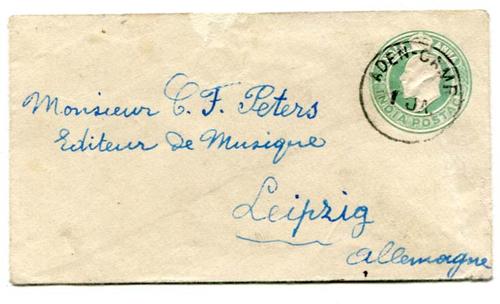 ADEN-CAMP
1 JA
INDIA POSTAGE
Monsieur C. F. Peters
Editeur de Musique
Leipzig
Allemagne